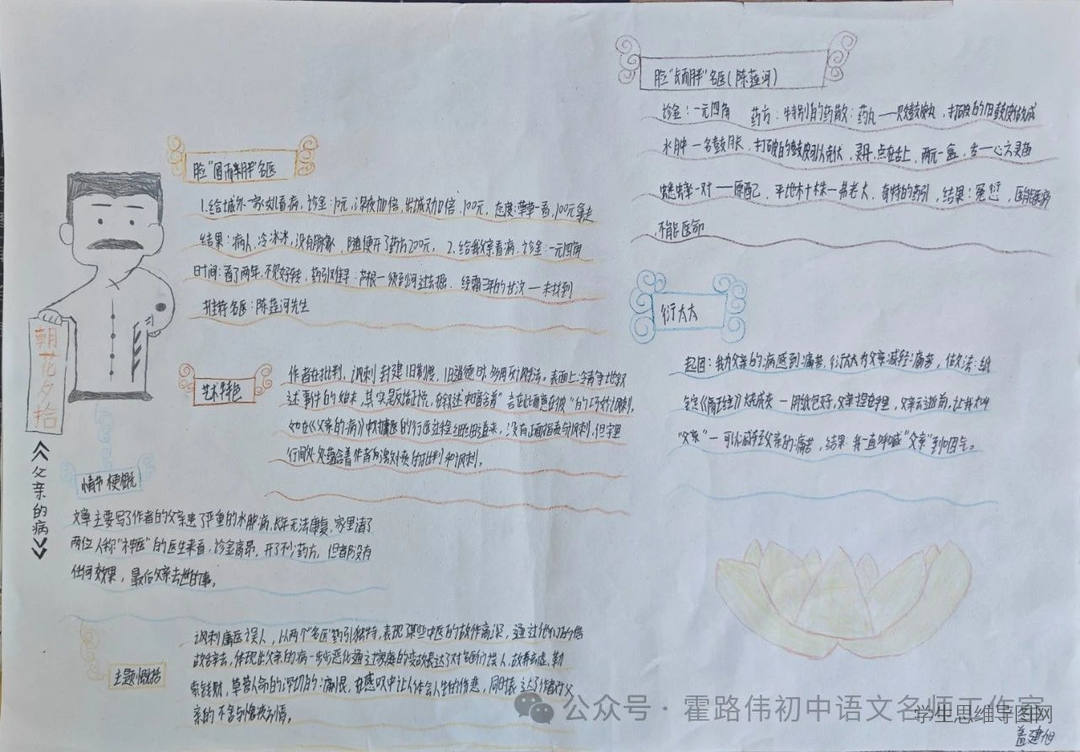 朝花夕拾
父亲的病
脸"圆而胖"名医
1.给城外一家姑娘看病,诊金:10元,深夜加倍,出城又加倍,100元,态度:草草一看,100元拿走
结果:病人,冷冰冰,没有脉象,随便开了药方200元,2.给我父亲看病,诊金:一元四角
时间:看了两年,不见好转,药引难寻:芦根一须到河边去掘,经霜三年的甘蔗一未找到
推荐名医:陈莲河先生
艺术特色
作者在批判、讽刺封建旧制度、旧道德时,多用反讽手法。表面上冷静地叙
述事件的始末,其实是反语讽刺,
如在《父亲的病》中对庸医的行医过程细细道来,没有正面指责与讽刺,但字里
行间处处蕴含着作者的激烈的批判和讽刺。
情节梗概
文章主要写了作者的父亲患了严重的水肿病,长年无法康复,家里请了
两位人称"神医"的医生来看,诊金高昂,开了不少药方,但都没有
任何效果,最后父亲去世的事。
主题概括
讽刺庸医误人,从两个"名医"药引独特,表现某些中医的故作高深,通过他们的借
故辞去,体现出父亲的病一步步恶化通过家庭的变故表达了对名医们误人,故弄玄虚、勒
索钱财,草菅人命的深切的痛恨,在感叹中让人体会人生的伤悲,同时表达了作者对父
亲的不舍与愧疚之情。
脸"长而胖"名医(陈莲河)
诊金:一元四角 药方:特别的药散:药丸——败鼓皮丸,打破的旧鼓皮做成
水肿一名鼓胀,打破的鼓皮可以克伏,灵丹:点在舌上,两元一盒,舌——心之灵苗
蟋蟀一对——原配,平地木十株—弗老大,奇特的药引,结果:冤愆,医能医病
不能医命
衍太太
起因:我为父亲的病感到痛苦,衍太太为父亲减轻痛苦,做法:纸
锭《高王经》烧成灰一用纸包好,父亲捏在手里,父亲去逝前,让我大叫
"父亲"一可以减轻父亲的痛苦,结果:我一直呼喊"父亲"到咽气。
公众号·霍路伟初中语文名师工作室
学生思维导图网